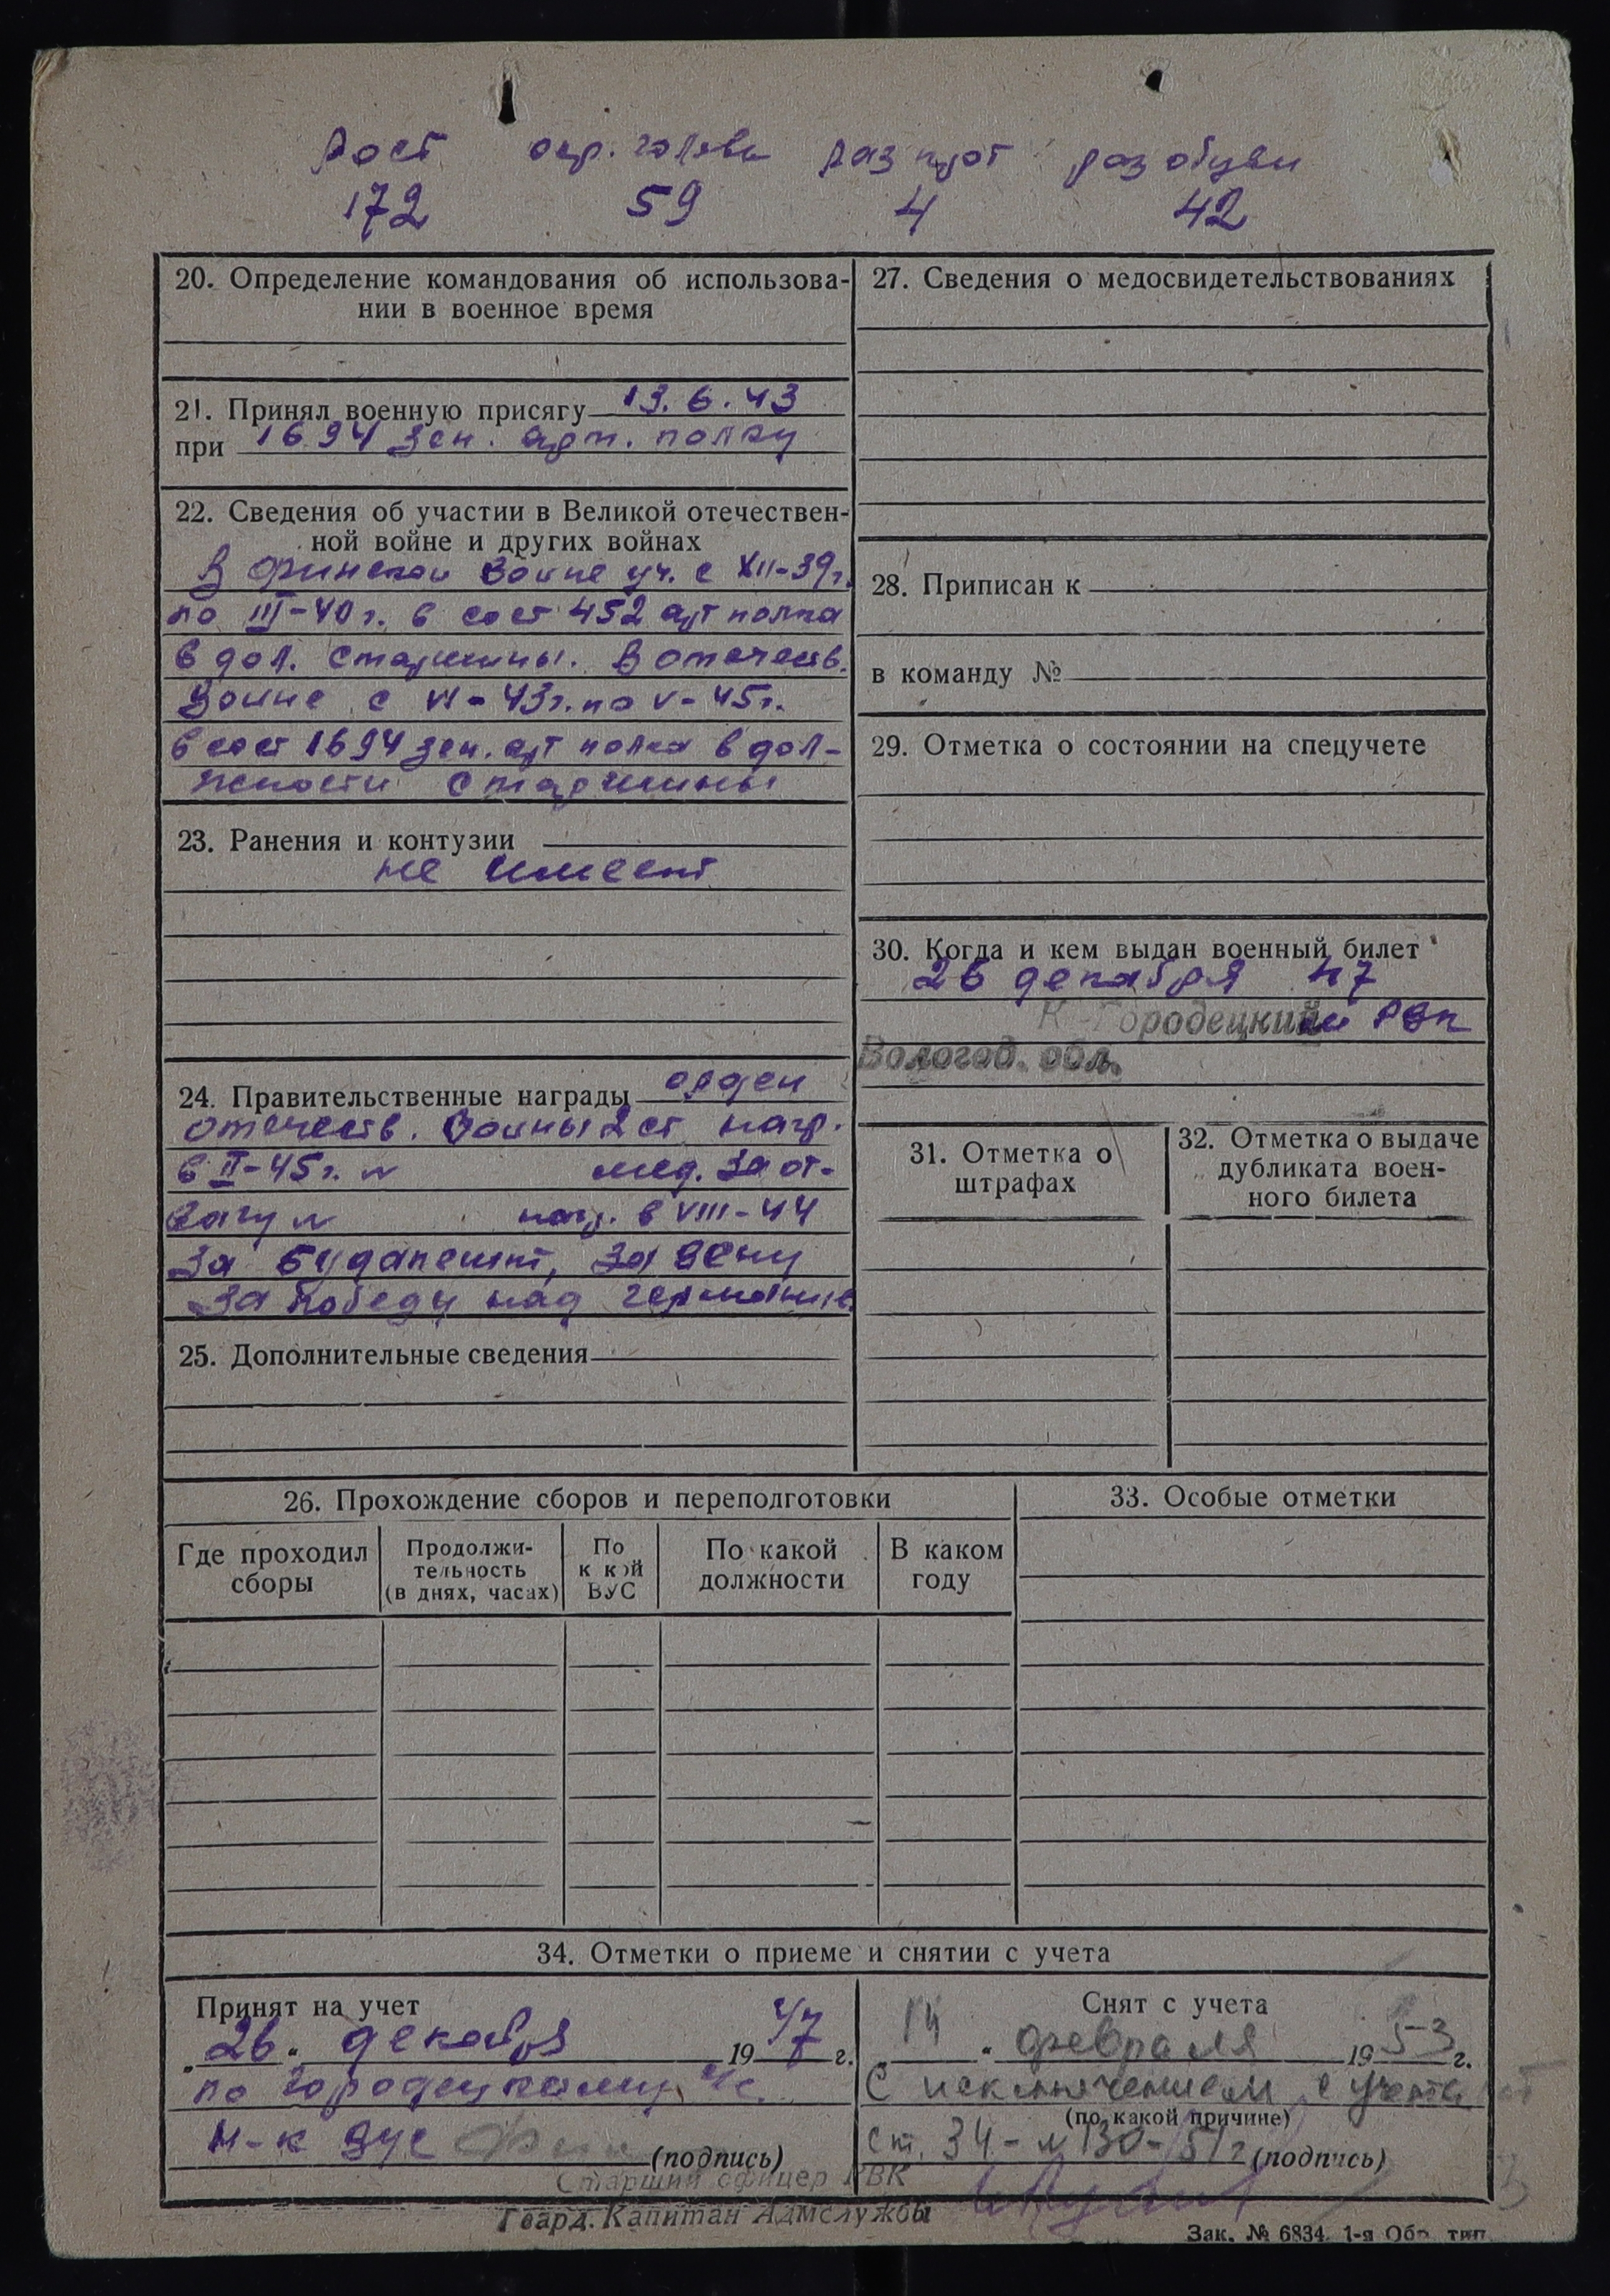 Рост окр. головы раз прот раз обуви
172 59 4 42
20. Определение командования об использова-
нии в военное время
21. Принял военную присягу 13.6.43
при 1694 зен. арт. полку
22. Сведения об участии в Великой отечествен-
ной войне и других войнах
В финской войне уч. с XII-39г.
по III-40г. в сост 452 арт полка
в дол. старшины. В отечеств.
войне с VI-43г. по V-45г.
в сост 1694 зен. арт полка в дол-
жности старшины
23. Ранения и контузии
не имеет
24. Правительственные награды орден
отечеств. войны 2 ст нагр.
в II-45г. № мед. За от-
вагу № нагр. в VIII-44
За Будапешт, За Вену
За победу над германией
25. Дополнительные сведения
27. Сведения о медосвидетельствованиях
28. Приписан к
в команду №
29. Отметка о состоянии на спецучете
30. Когда и кем выдан военный билет
26 декабря 47
К-Городецкий РВК
Вологод. обл.
31. Отметка о
штрафах
32. Отметка о выдаче
дубликата воен-
ного билета
26. Прохождение сборов и переподготовки
Где проходил
сборы
Продолжи-
тельность
(в днях, часах)
По
к кой
ВУС
По какой
должности
В каком
году
33. Особые отметки
34. Отметки о приеме и снятии с учета
Принят на учет
„26“ декабря 1947 г.
по Городецкому с/с
Н-к ВУС (подпись)
Старший офицер РВК
Гвард. Капитан Адмслужбы
Снят с учета
14 “ февраля 1953 г.
С исключением с учета
(по какой причине)
ст. 34 - №130-51г (подпись)
Зак. № 6834. 1-я Обр. тип.